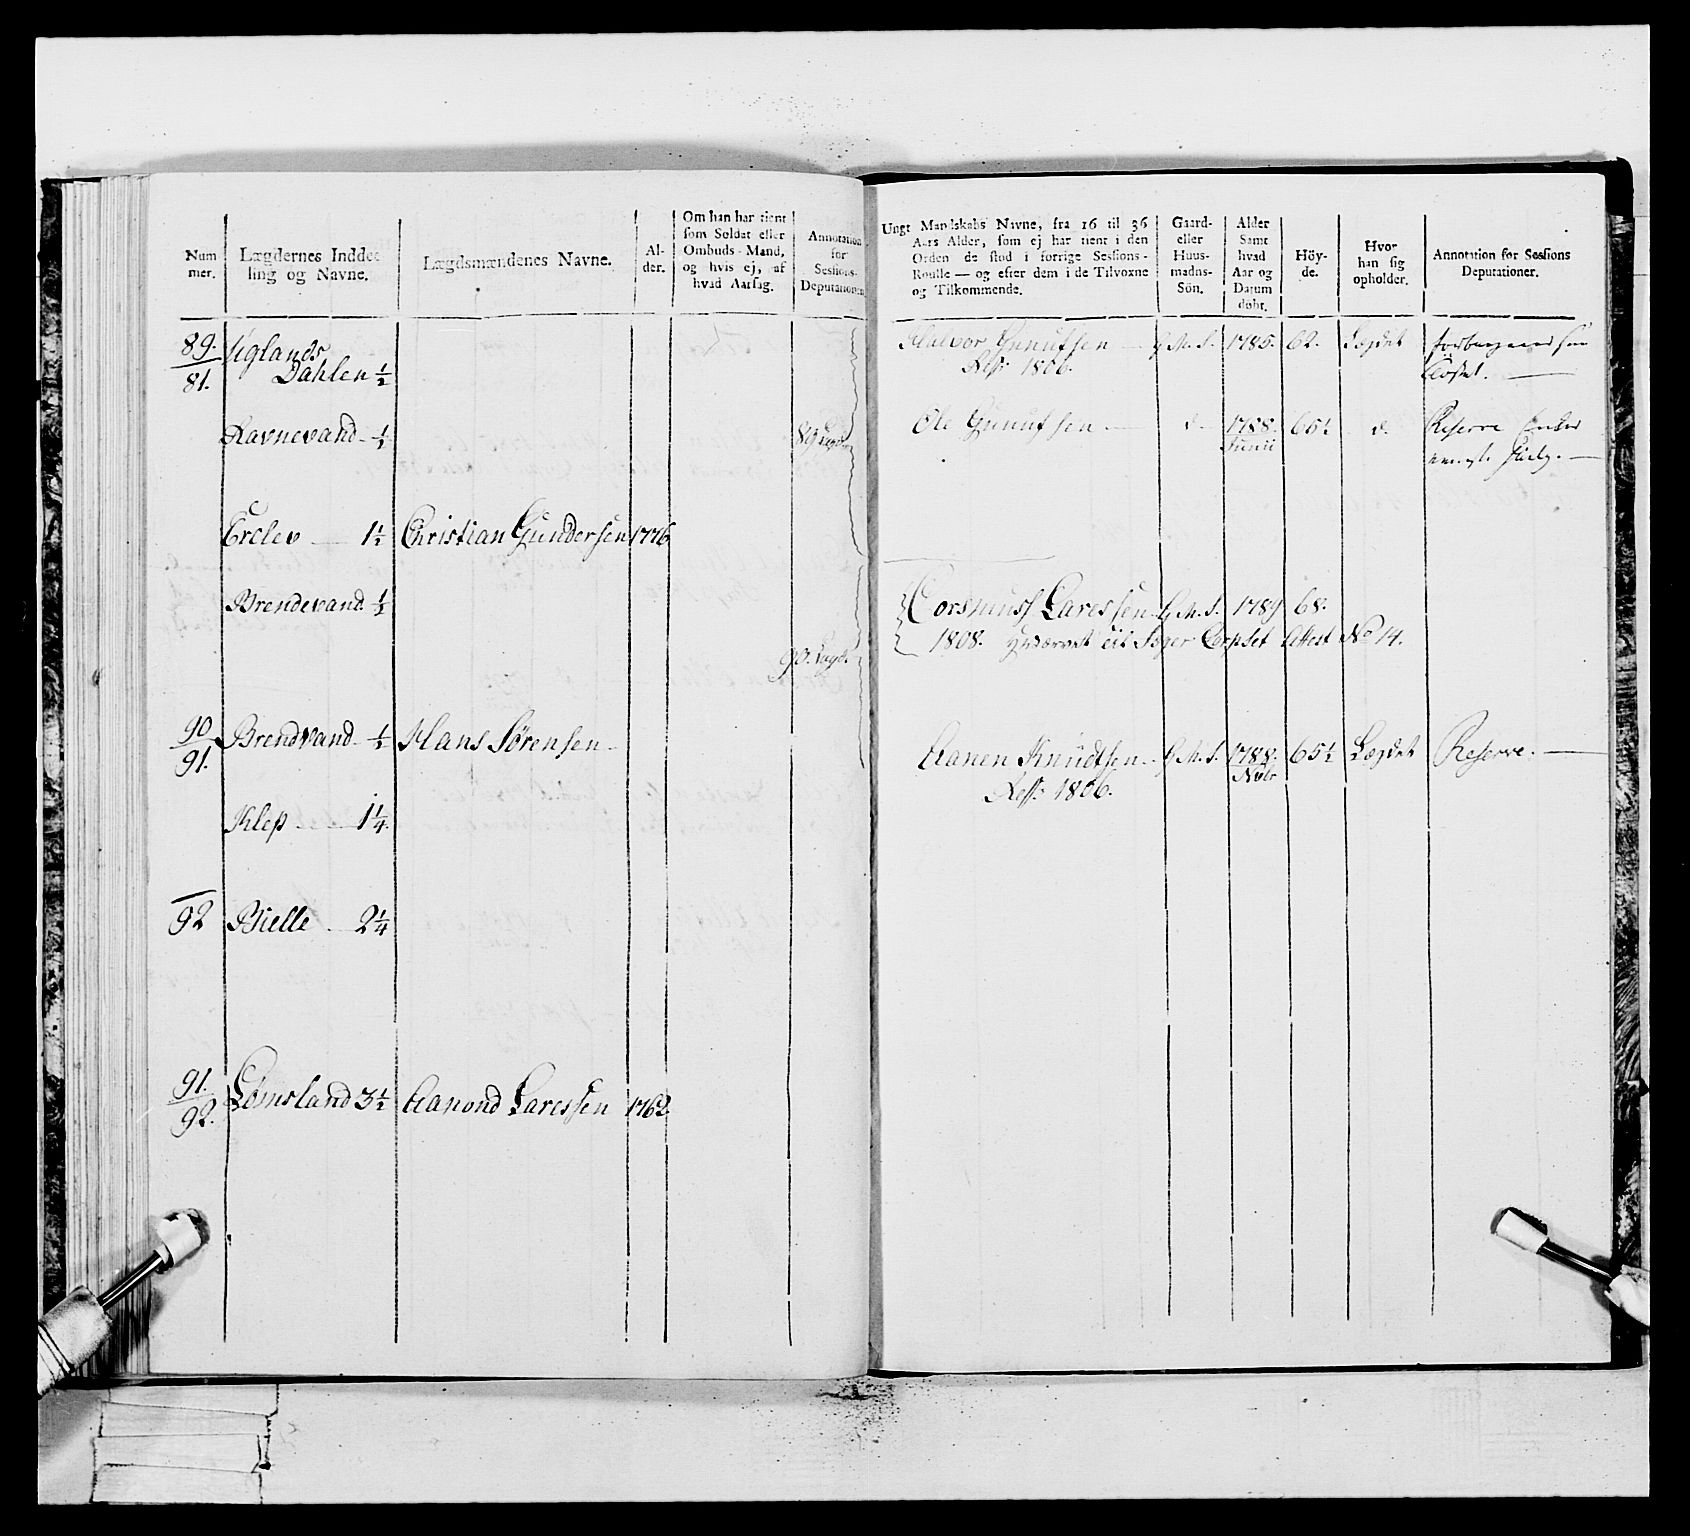 Num
mer.
Lægdernes Inddee
ling og Navne.
Lægdsmændenes Navne.
Al-
der.
Om han har tient
som Soldat eller
Ombuds-Mand,
og hvis ej, af
hvad Aarsag.
Annotation
for
Sessions-
Deputationen
89.
81.
Uglands
Dahlen ½
Ravnevand ½
89 Lægd
Erclev 1½ Christian Gundersen 1776
Brendevand ½
90. Lægd.
90
91.
Brendvand ½ Hans Sörensen
Klep 1¼.
92 Bielle 2¼
91.
92.
Lömsland 3½ Aanond Laressen 1762
Ungt Mandskabs Navne, fra 16 til 36
Aars Alder, som ej har tient i den
Orden de stod i forrige Sessions-
Roulle — og efter dem i de Tilvoxne
og Tilkommende.
Gaard-
eller
Huus-
mands-
Sön.
Alder
Samt
hvad
Aar og
Datum
døbt.
Höy-
de.
Hvor
han sig
opholder.
Annotation for Sessions
Deputationer.
Halvor Gunufsen G. M. S. 1785. 62. Lægdet
Ress 1806.
Ole Gunufsen d 1788. 65½ d. Reserve
Junii
Laressen G. M. S. 1789 68.
1808. til Jæger Corpset Attest No 14.
Aanen Knudtsen G. M. S. 1788. 65½ Lægdet Reserve.
Novbr
Ress: 1806.